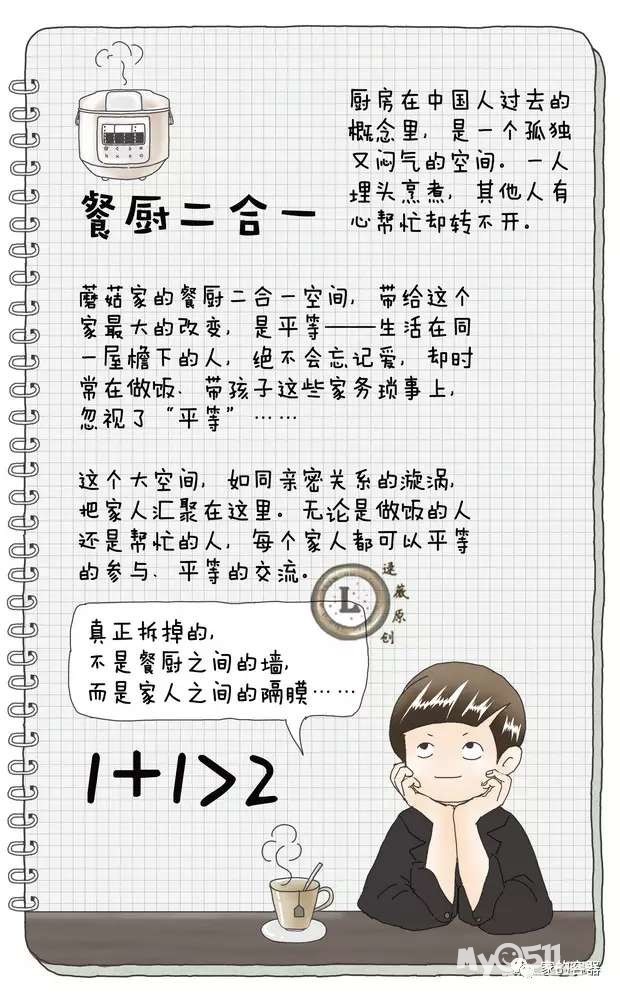 厨房在中国人过去的
概念里，是一个孤独
又闷气的空间。一人
埋头烹煮，其他人有
心帮忙却转不开。
餐厨二合一
蘑菇家的餐厨二合一空间，带给这个
家最大的改变，是平等——生活在同
一屋檐下的人，绝不会忘记爱，却时
常在做饭、带孩子这些家务琐事上，
忽视了“平等”……
这个大空间，如同亲密关系的漩涡，
把家人汇聚在这里。无论是做饭的人
还是帮忙的人，每个家人都可以平等
的参与、平等的交流。
L
逯薇原创
真正拆掉的，
不是餐厨之间的墙，
而是家人之间的隔膜……
1+1>2
My0511
家的容器